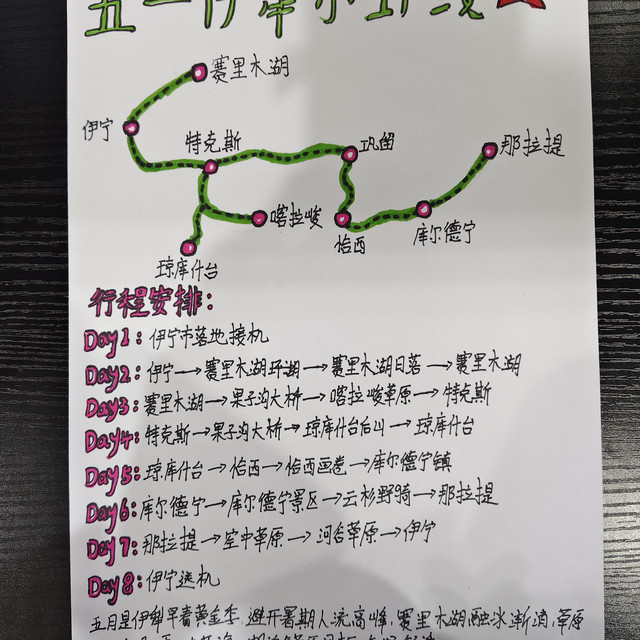 五一伊犁小环线
赛里木湖
伊宁
特克斯
巩留
那拉提
喀拉峻
恰西
库尔德宁
琼库什台
行程安排:
Day1:伊宁市落地接机
Day2:伊宁→赛里木湖环湖→赛里木湖日落→赛里木湖
Day3:赛里木湖→果子沟大桥→喀拉峻草原→特克斯
Day4:特克斯→果子沟大桥→琼库什台后山→琼库什台
Day5:琼库什台→恰西→恰西画卷→库尔德宁镇
Day6:库尔德宁→库尔德宁景区→云杉野骑→那拉提
Day7:那拉提→空中草原→河谷草原→伊宁
Day8:伊宁送机
五月是伊犁早春黄金季,避开暑期人流高峰,赛里木湖融冰渐消,草原